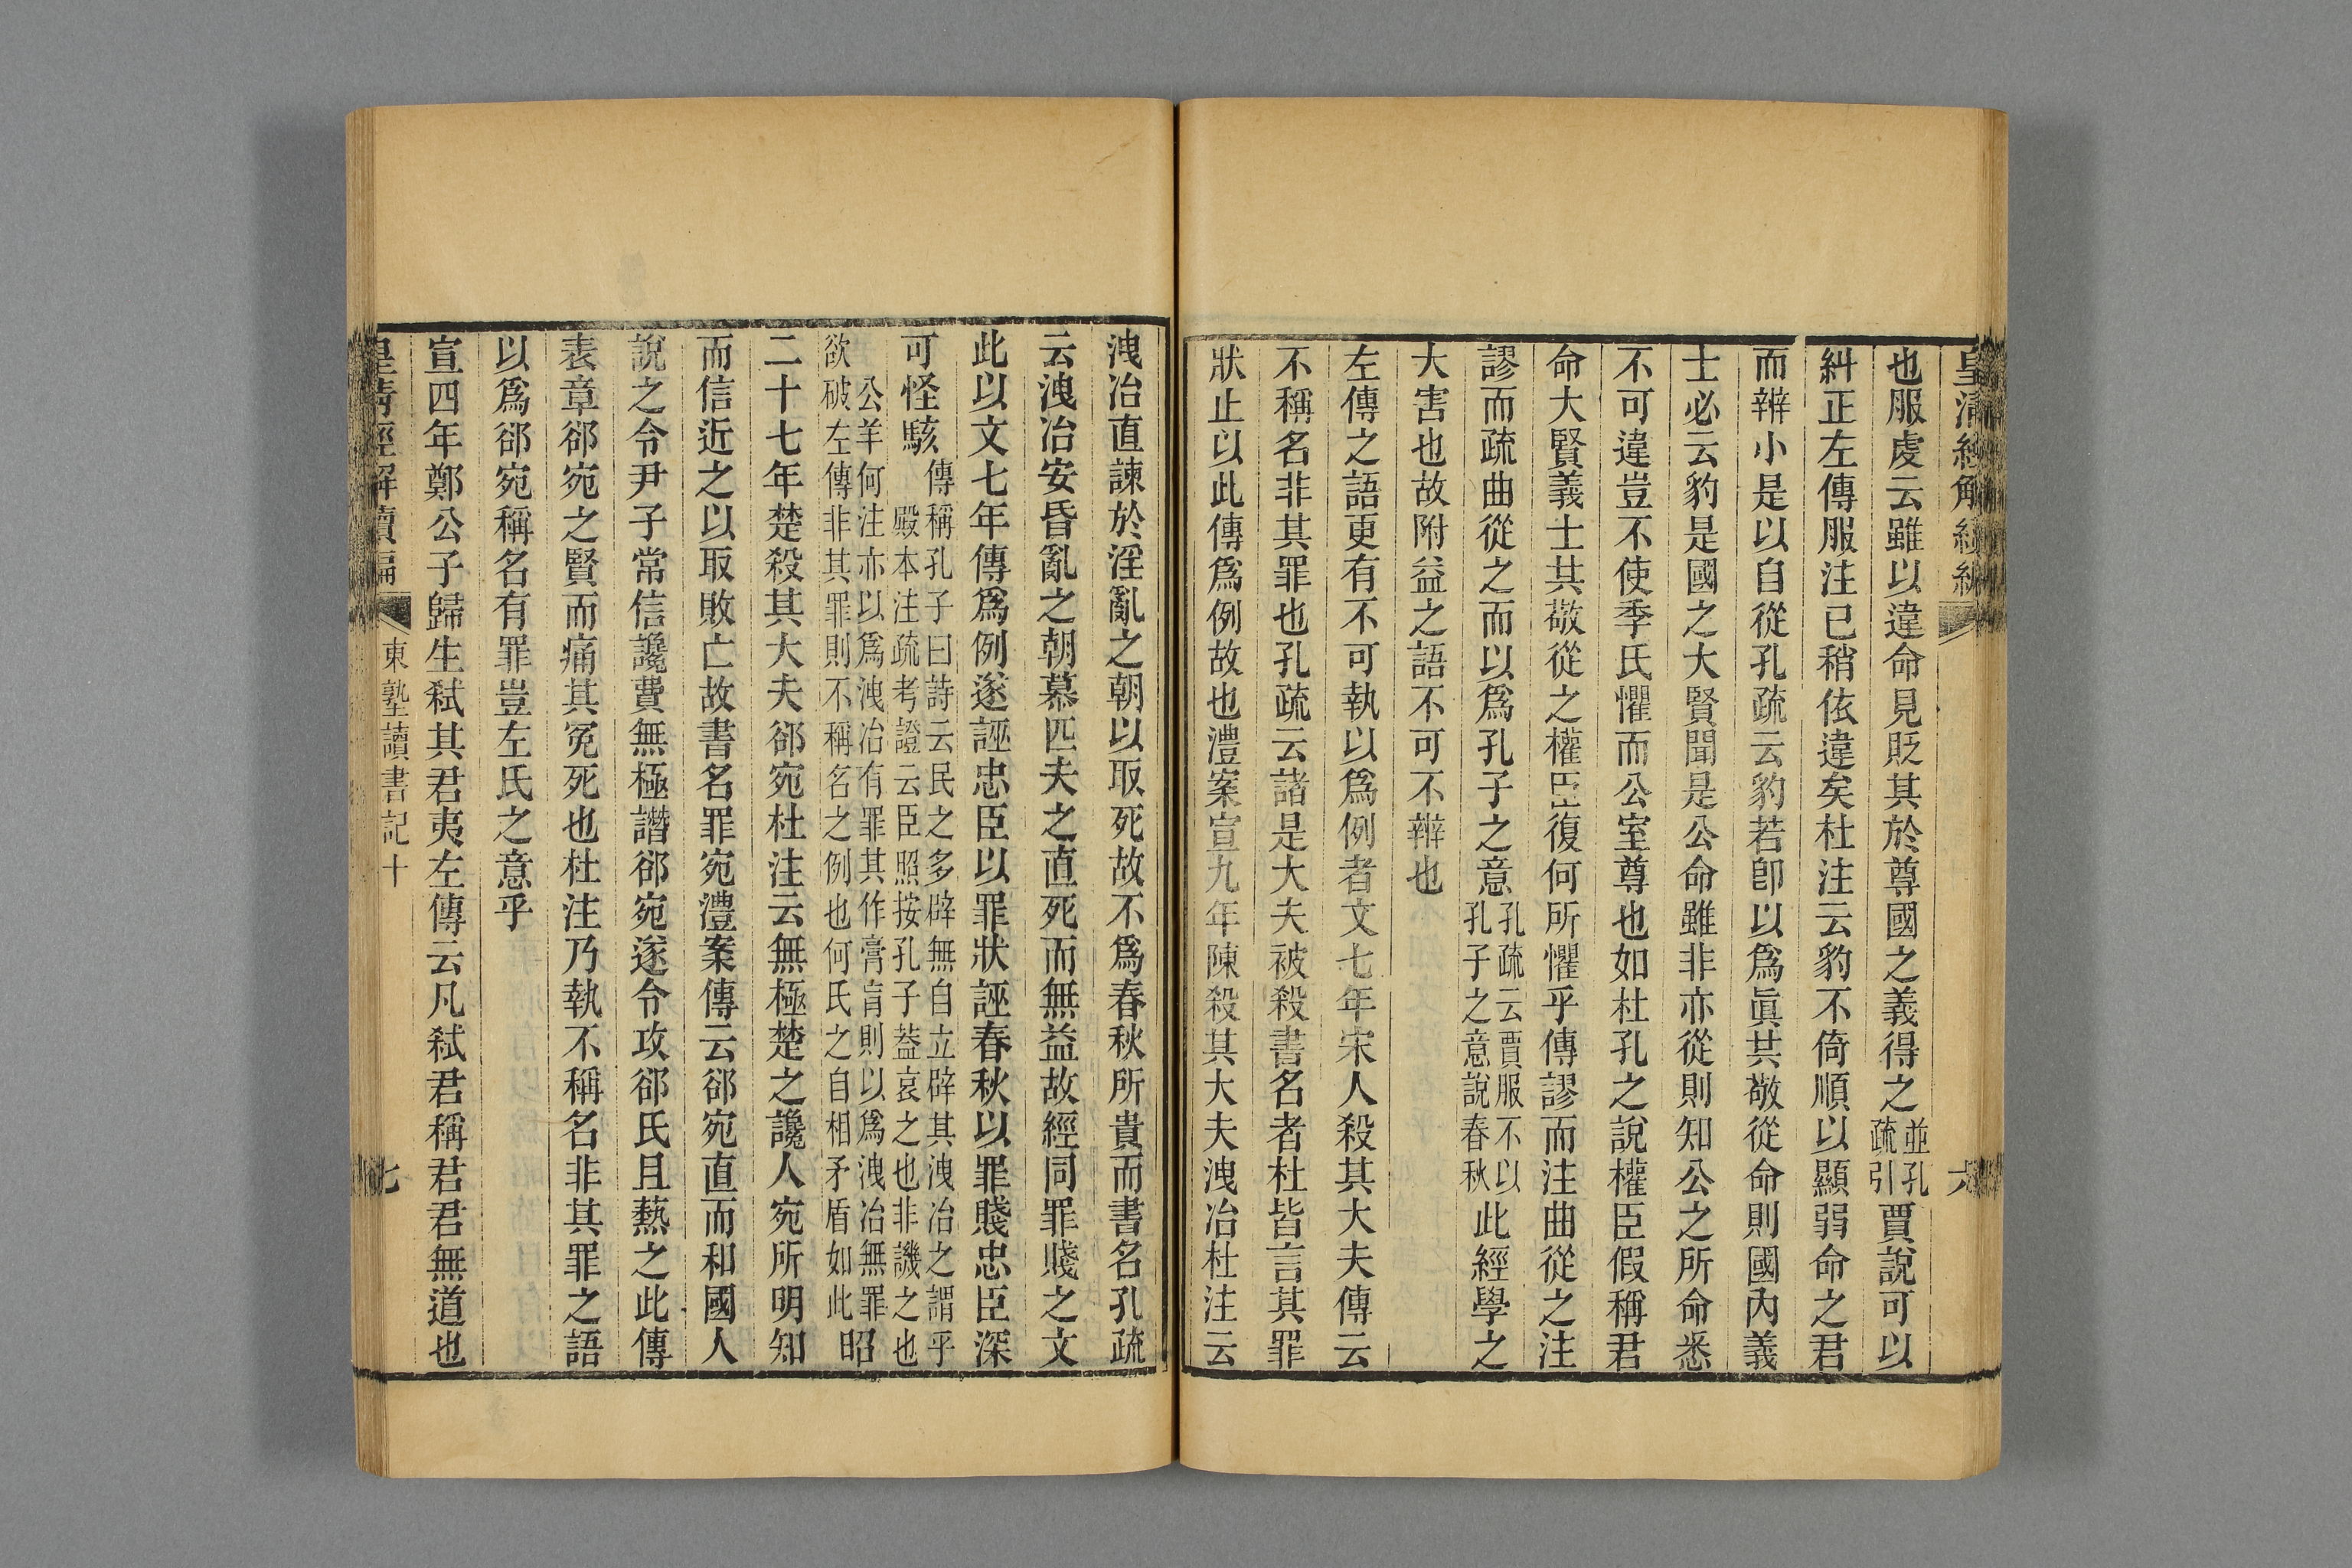 皇清經解續編 六
也服虔云雖以違命見貶其於尊國之義得之並孔疏引賈說可以
糾正左傳服注已稍依違矣杜注云豹不倚順以顯弱命之君
而辨小是以自從孔疏云豹若卽以爲眞其敬從命則國內義
士必云豹是國之大賢聞是公命雖非亦從則知公之所命悉
不可違豈不使季氏懼而公室尊也如杜孔之說權臣假稱君
命大賢義士其敬從之權臣復何所懼乎傳謬而注曲從之注
謬而疏曲從之而以爲孔子之意孔疏云賈服不以孔子之意說春秋此經學之
大害也故附益之語不可不辨也
左傳之語更有不可執以爲例者文七年宋人殺其大夫傳云
不稱名非其罪也孔疏云諸是大夫被殺書名者杜皆言其罪
狀止以此傳爲例故也澧案宣九年陳殺其大夫洩冶杜注云
洩冶直諫於淫亂之朝以取死故不爲春秋所貴而書名孔疏
云洩冶安昏亂之朝慕匹夫之直死而無益故經同罪賤之文
此以文七年傳爲例遂誣忠臣以罪狀誣春秋以罪賤忠臣深
可怪駭傳稱孔子曰詩云民之多辟無自立辟其洩冶之謂乎殿本注疏考證云臣照按孔子葢哀之也非譏之也
公羊何注亦以爲洩冶有罪其作膏肓則以爲洩冶無罪欲破左傳非其罪則不稱名之例也何氏之自相矛盾如此昭
二十七年楚殺其大夫郤宛杜注云無極楚之讒人宛所明知
而信近之以取敗亡故書名罪宛澧案傳云郤宛直而和國人
說之令尹子常信讒費無極譖郤宛遂令攻郤氏且爇之此傳
表章郤宛之賢而痛其冤死也杜注乃執不稱名非其罪之語
以爲郤宛稱名有罪豈左氏之意乎
宣四年鄭公子歸生弒其君夷左傳云凡弒君稱君君無道也
皇清經解續編 東塾讀書記十 七